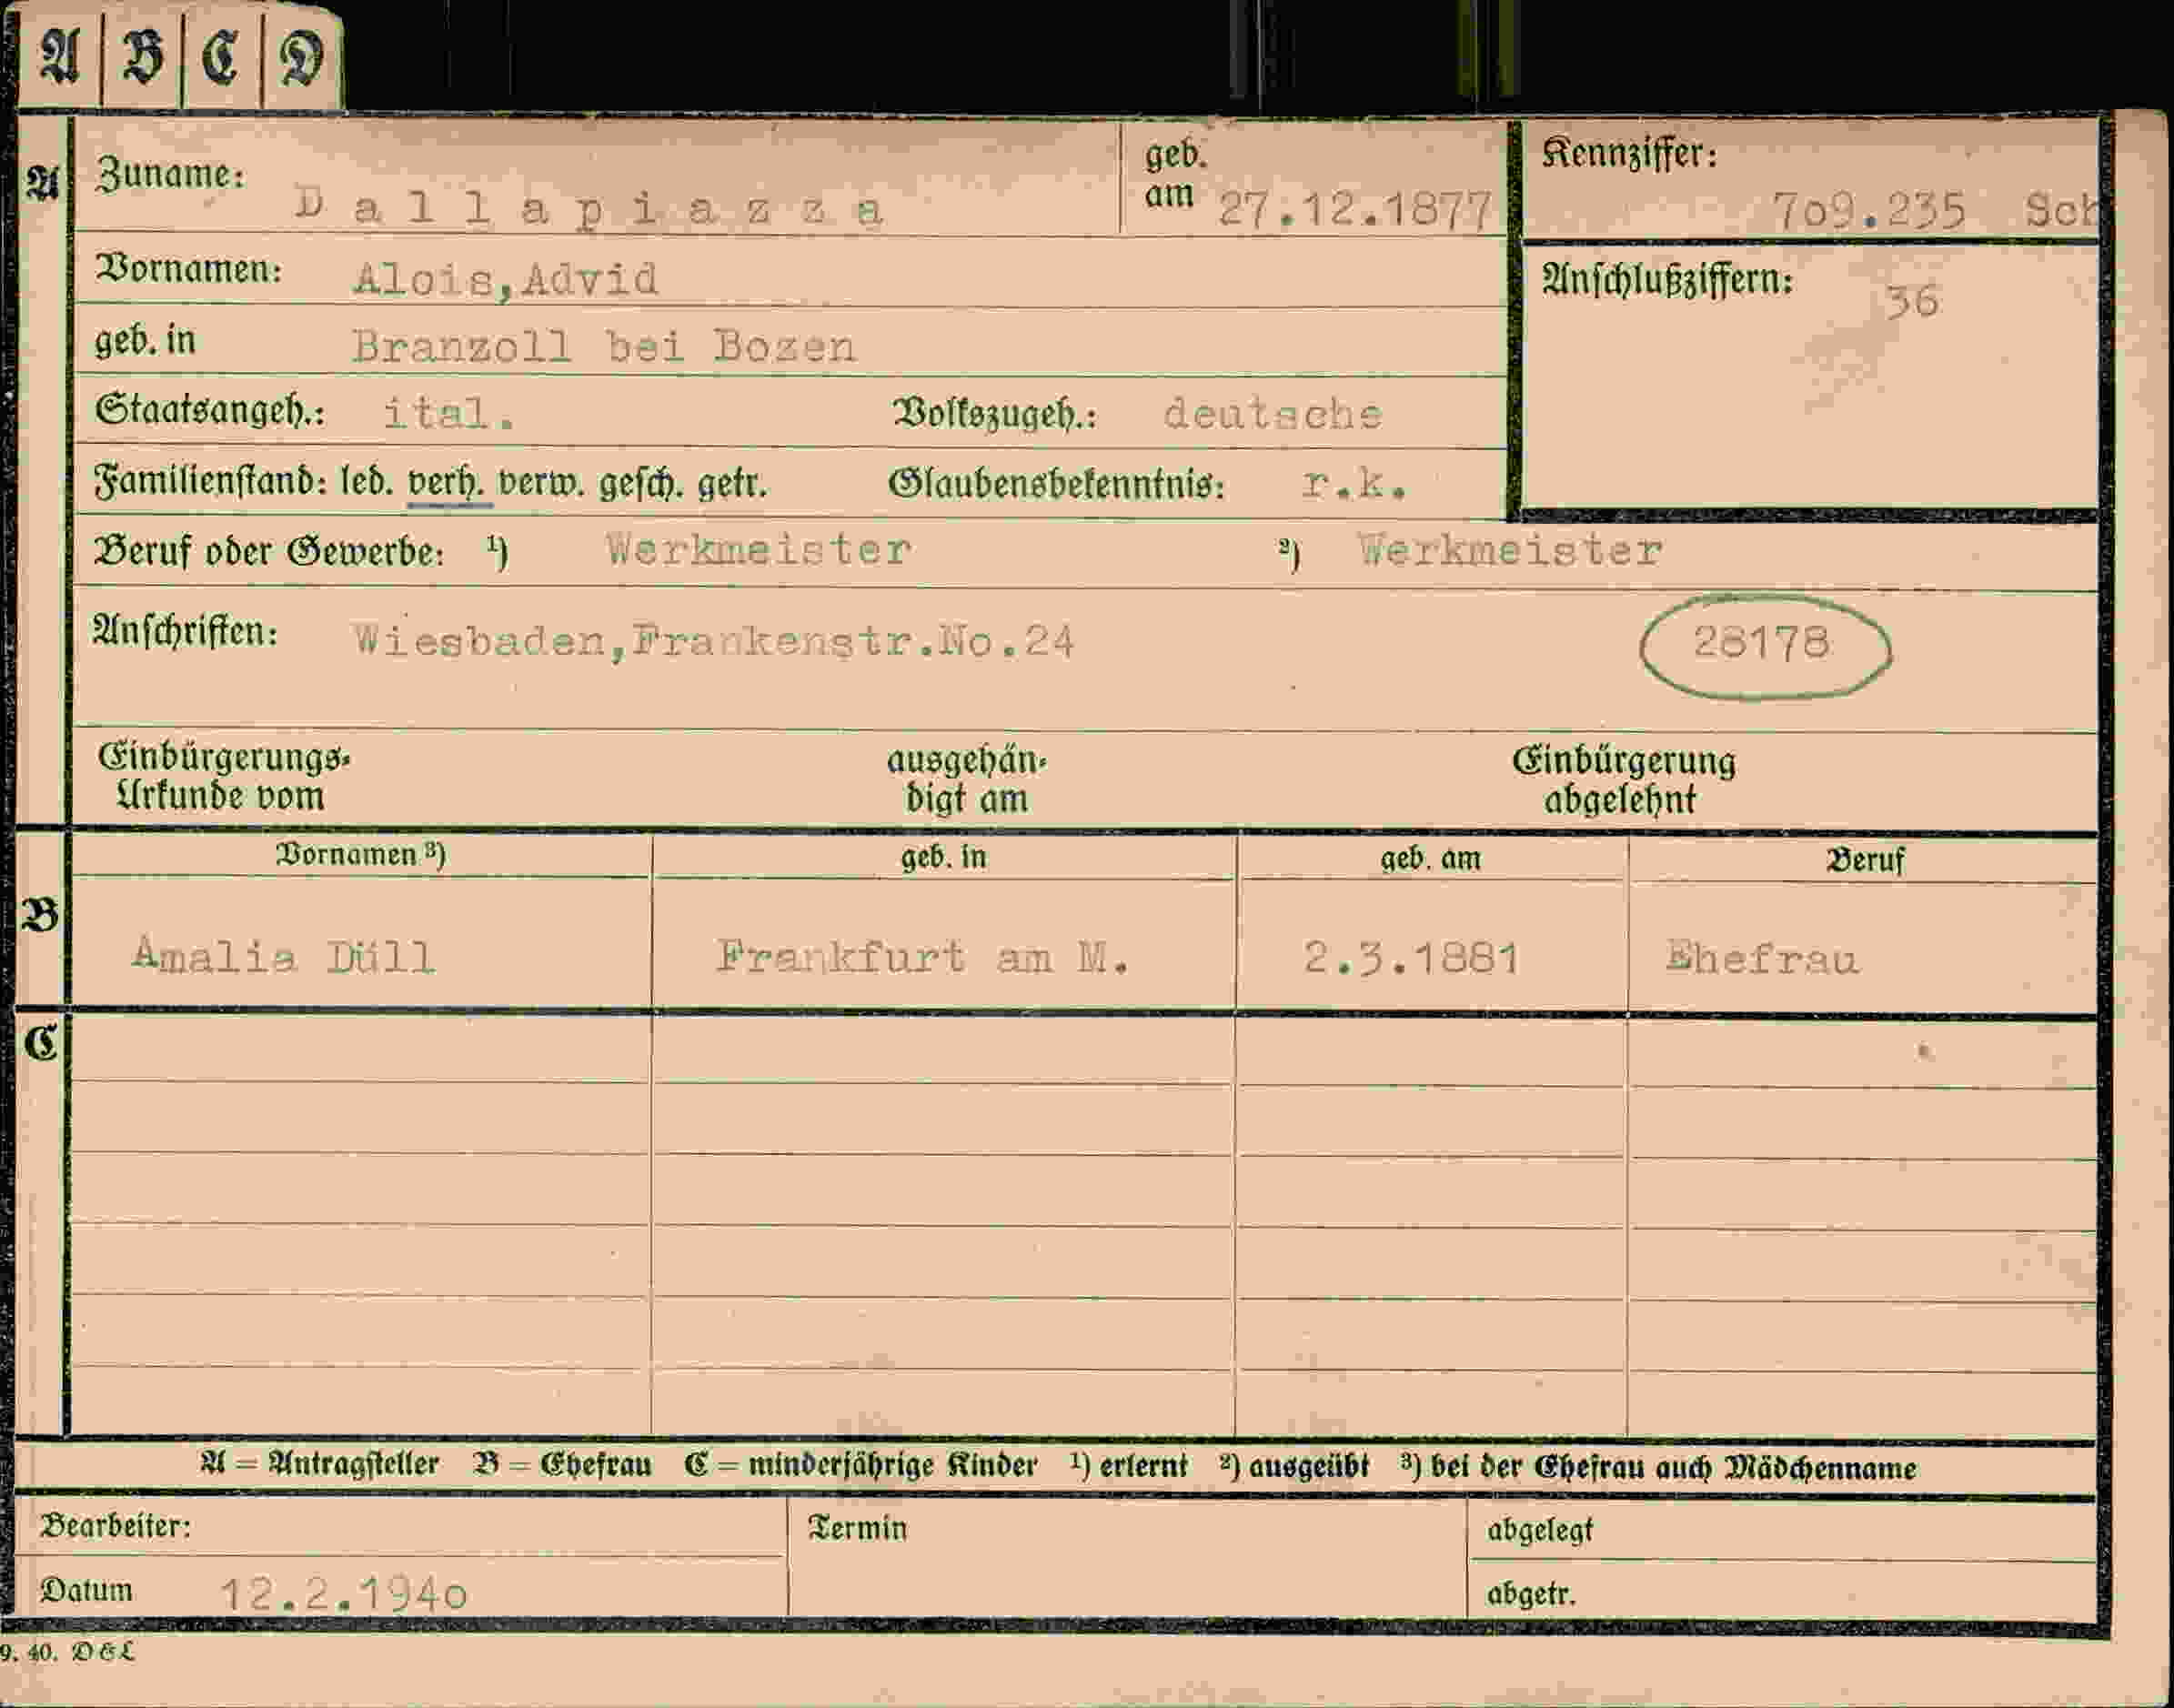 A B C D
A Zuname: Dallapiazza geb. am 27.12.1877 Kennziffer: 709.235 Sch
Vornamen: Alois,Advid Anschlußziffern: 36
geb. in Branzoll bei Bozen
Staatsangeh.: ital. Volkszugeh.: deutsche
Familienstand: led. verh. verw. gesch. getr. Glaubensbekenntnis: r.k.
Beruf oder Gewerbe: ¹) Werkmeister ²) Werkmeister
Anschriften: Wiesbaden,Frankenstr.No.24 28178
Einbürgerungs- ausgehän- Einbürgerung
Urkunde vom digt am abgelehnt
B Vornamen ³) geb. in geb. am Beruf
Amalia Düll Frankfurt am M. 2.3.1881 Ehefrau
C
A = Antragsteller B = Ehefrau C = minderjährige Kinder ¹) erlernt ²) ausgeübt ³) bei der Ehefrau auch Mädchenname
Bearbeiter: Termin abgelegt
Datum 12.2.1940 abgetr.
9. 40. D & L